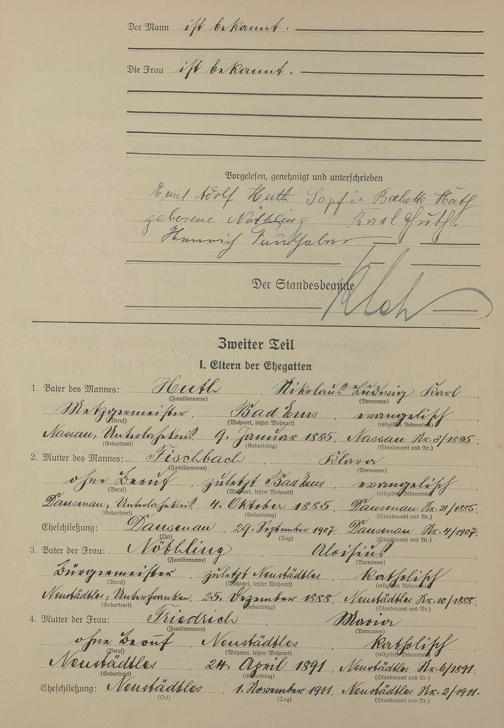 Der Mann ist bekannt.
Die Frau ist bekannt.
Vorgelesen, genehmigt und unterschrieben
Emil Adolf Huth Sophie Babette Huth
geborene Nöthling Karl Huth.
Heinrich
Der Standesbeamte
Zweiter Teil
I. Eltern der Ehegatten
1. Vater des Mannes: Huth Nikolaus Ludwig Karl
(Familienname) (Vornamen)
Metzgermeister, Bad Ems evangelisch
(Beruf) (Wohnort, letzter Wohnort) (religiöses Bekenntnis)
Nassau, Unterlahnkreis 9. Januar 1885. Nassau Nr. 3/1885.
(Geburtsort) (Geburtstag) (Standesamt und Nr.)
2. Mutter des Mannes: Fischbach Klara
(Familienname) (Vornamen)
ohne Beruf zuletzt Bad Ems evangelisch
(Beruf) (Wohnort, letzter Wohnort) (religiöses Bekenntnis)
Dausenau, Unterlahnkreis 4. Oktober 1885. Dausenau Nr. /1885.
(Geburtsort) (Geburtstag) (Standesamt und Nr.)
Eheschließung: Dausenau 29. September 1907. Dausenau Nr. 4/1907.
(Ort) (Tag) (Standesamt und Nr.)
3. Vater der Frau: Nöthling Aloisius
(Familienname) (Vornamen)
Bürgermeister zuletzt Neustädtles katholisch
(Beruf) (Wohnort, letzter Wohnort) (religiöses Bekenntnis)
Neustädtles, Unterfranken 25. Dezember 1888. Neustädtles Nr. 10/1888.
(Geburtsort) (Geburtstag) (Standesamt und Nr.)
4. Mutter der Frau: Friedrich Maria
(Familienname) (Vornamen)
ohne Beruf Neustädtles katholisch
(Beruf) (Wohnort, letzter Wohnort) (religiöses Bekenntnis)
Neustädtles 24. April 1891. Neustädtles Nr. 6/1891.
(Geburtsort) (Geburtstag) (Standesamt und Nr.)
Eheschließung: Neustädtles 1. November 1911. Neustädtles Nr. 2/1911.
(Ort) (Tag) (Standesamt und Nr.)